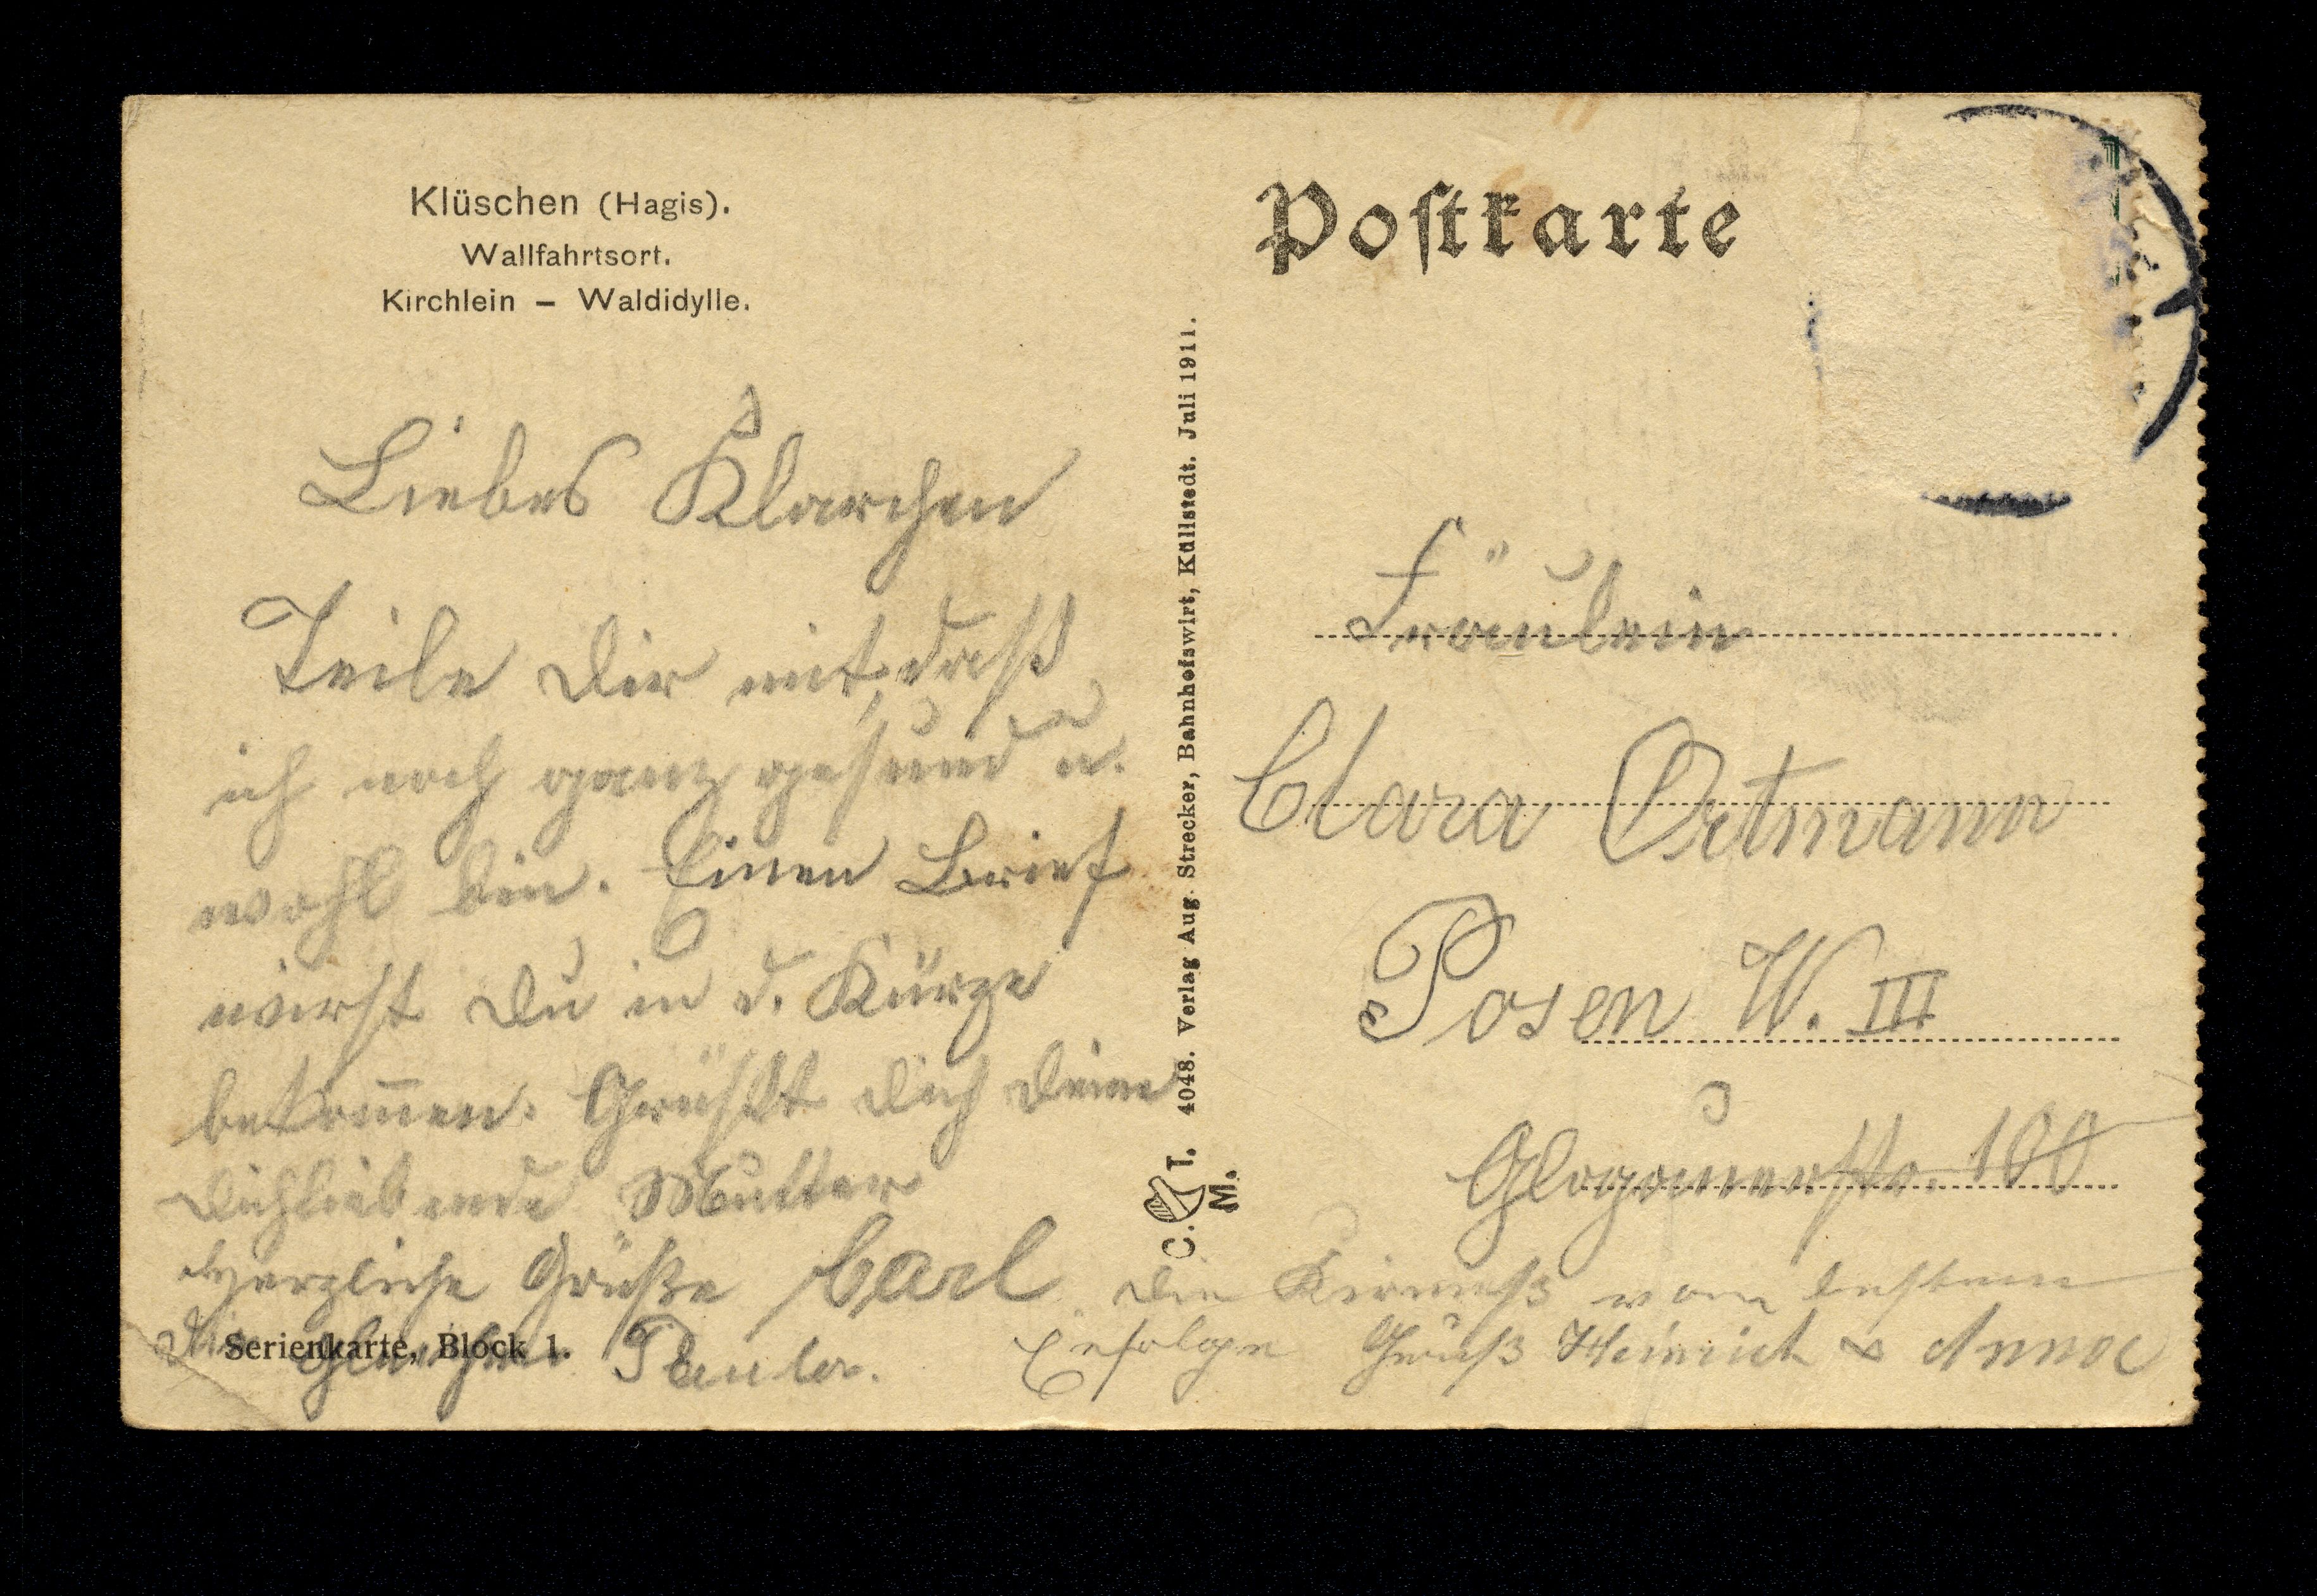 Klüschen (Hagis).
Wallfahrtsort.
Kirchlein – Waldidylle.
Liebes Klärchen
Teile Dir mit, daß
ich noch ganz gesund u.
wohl bin. Einen Brief
wirst Du in d. Kürze
bekom̅en. Grüßt Dich Deine
Dichliebende Mutter
Herzliche Grüße Carl
Serienkarte, Block 1.
4048. Verlag Aug. Strecker, Bahnhofswirt, Küllstedt. Juli 1911.
C. T.
M.
Postkarte
Fräulein
Clara Ortmann
Posen W. III
Glogauerstr. 100
Die Kirmeß vom besten
Erfolge Gruß Heinrich & Anna